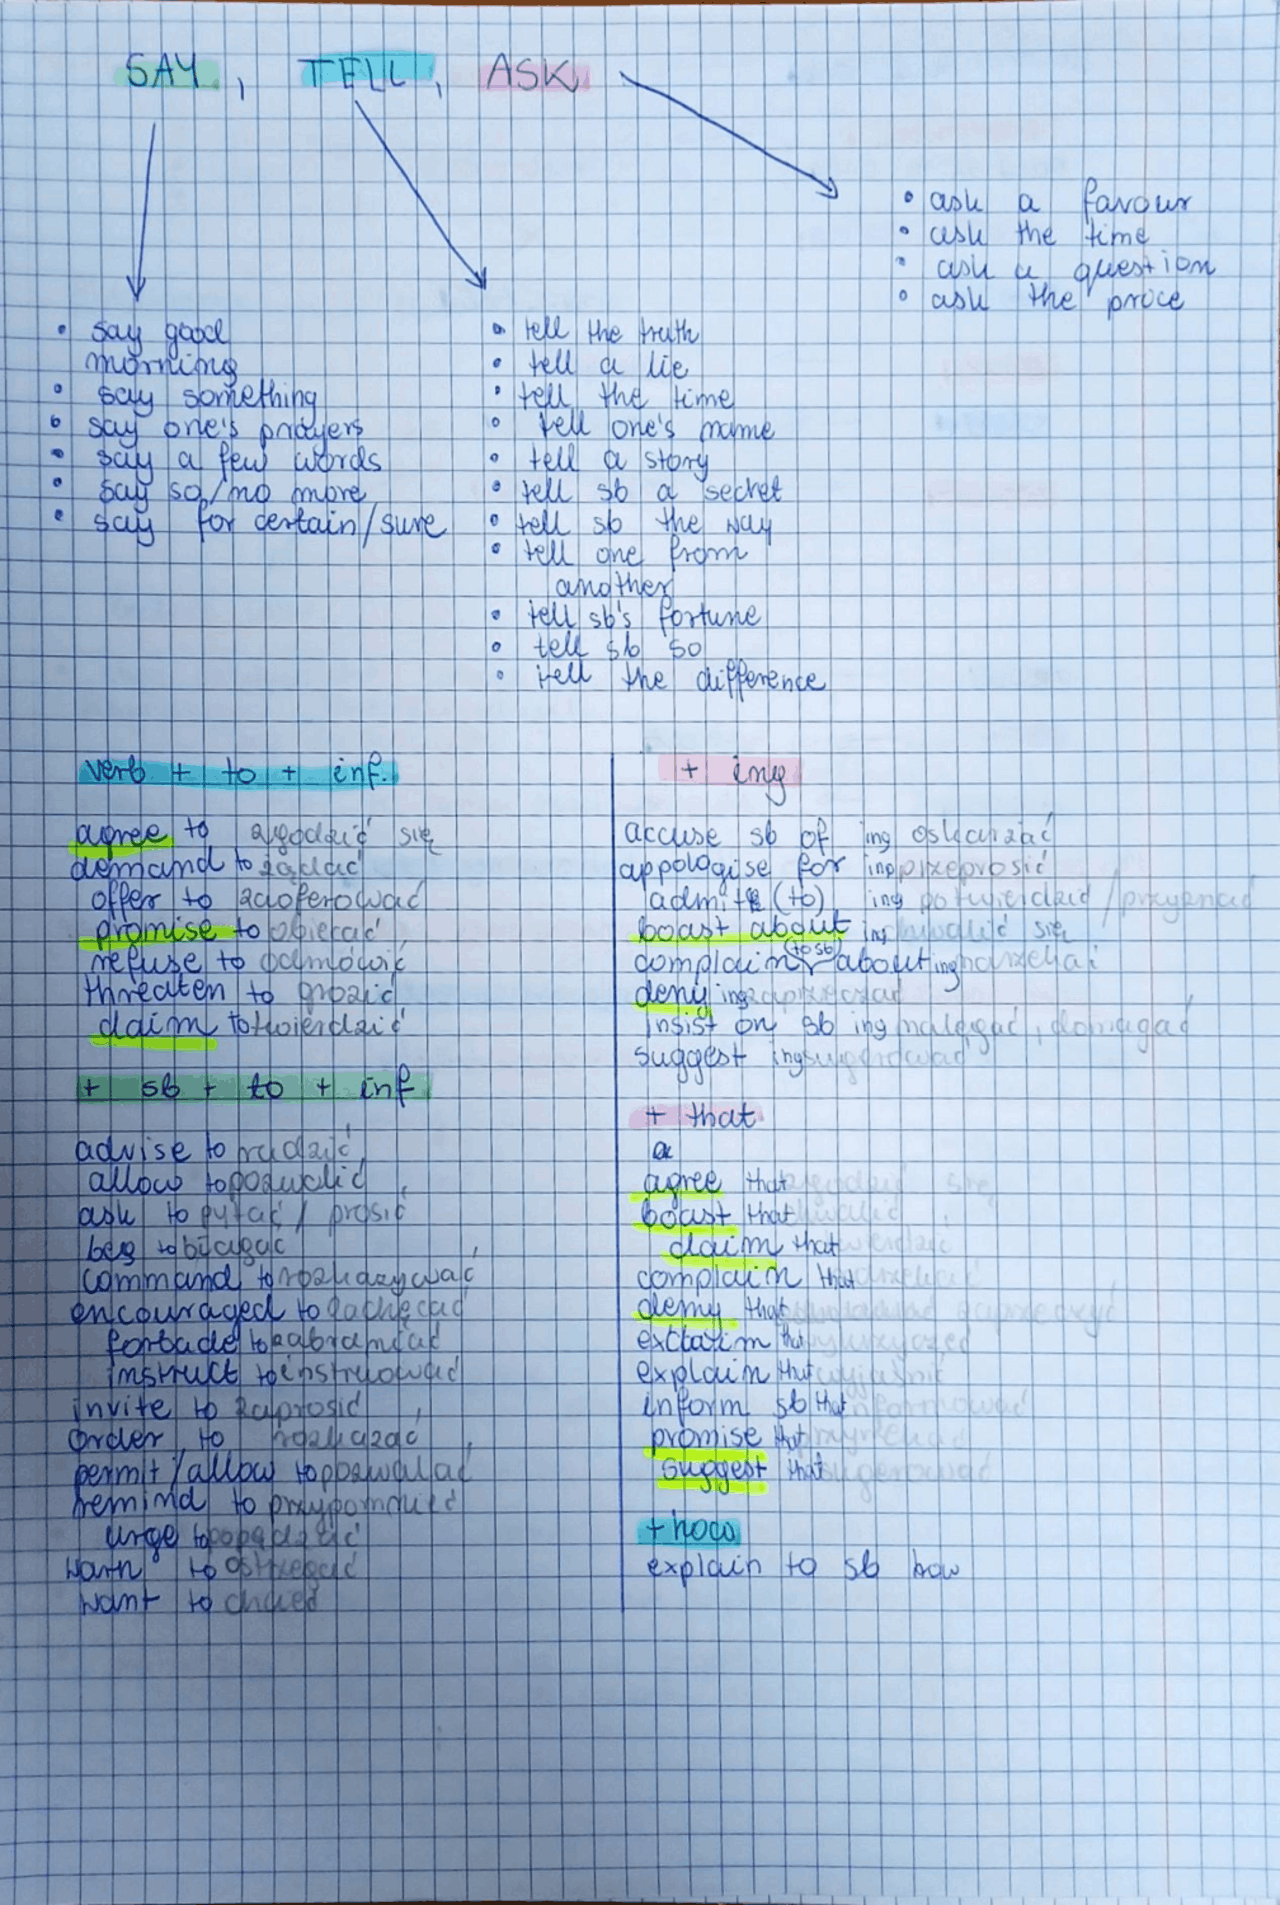 SAY, TELL, ASK
• ask a favour
• ask the time
• ask a question
• ask the price
• say good
morning
• say something
• say one's prayers
• say a few words
• say so/no more
• say for certain/sure
• tell the truth
• tell a lie
• tell the time
• tell one's name
• tell a story
• tell sb a secret
• tell sb the way
• tell one from
another
• tell sb's fortune
• tell sb so
• tell the difference
verb + to + inf.
agree to zgodzić się
demand to żądać
offer to zaoferować
promise to obiecać
refuse to odmówić
threaten to grozić
claim to twierdzić
+ sb + to + inf
advise to radzić
allow to pozwolić
ask to pytać / prosić
beg to błagać
command to rozkazywać
encouraged to zachęcać
forbade to zabraniać
instruct to instruować
invite to zaprosić
order to rozkazać
permit/allow to pozwalać
remind to przypomnieć
urge to popędzać
warn to ostrzegać
want to chcieć
+ ing
accuse sb of ing oskarżać
appologise for ing przeprosić
admit (to) ing potwierdzić / przyznać
boast about ing chwalić się
complain (to sb) about ing narzekać
deny ing zaprzeczać
insist on sb ing nalegać, domagać
suggest ing sugerować
+ that
agree that zgodzić się
boast that chwalić
claim that twierdzić
complain that narzekać
deny that zaprzeczyć
exclaim that
explain that wyjaśnić
inform sb that informować
promise that
suggest that sugerować
+ how
explain to sb how